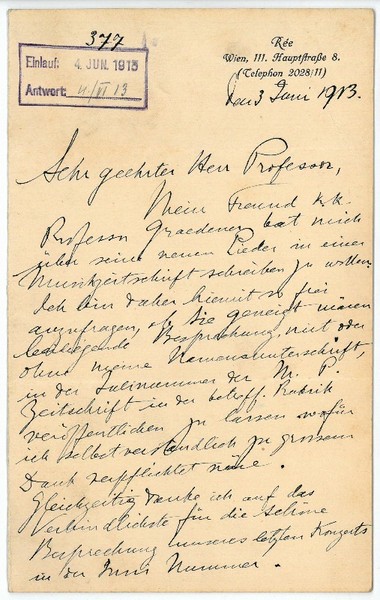 377
Einlauf: 4. JUN. 1913
Antwort: 4/VI 13
Rée
Wien, III. Hauptstraße 8.
(Telephon 2028/II)
den 3 Juni 1913.
Sehr geehrter Herr Professor,
Mein Freund k.k.
Professor Graedener bat mich
über seine neuen Lieder in einer
Musikzeitschrift schreiben zu wollen.
Ich bin daher hiemit so frei
anzufragen, ob Sie geneigt wären
beiliegende Besprechung, mit oder
ohne meine Namensunterschrift,
in der Julinummer der M. P.
Zeitschrift in der betreff. Rubrik
veröffentlichen zu lassen wofür
ich selbstverständlich zu grossem
Dank verpflichtet wäre.
Gleichzeitig danke ich auf das
Verbindlichste für die schöne
Besprechung unseres letzten Konzerts
in der Juni Nummer.